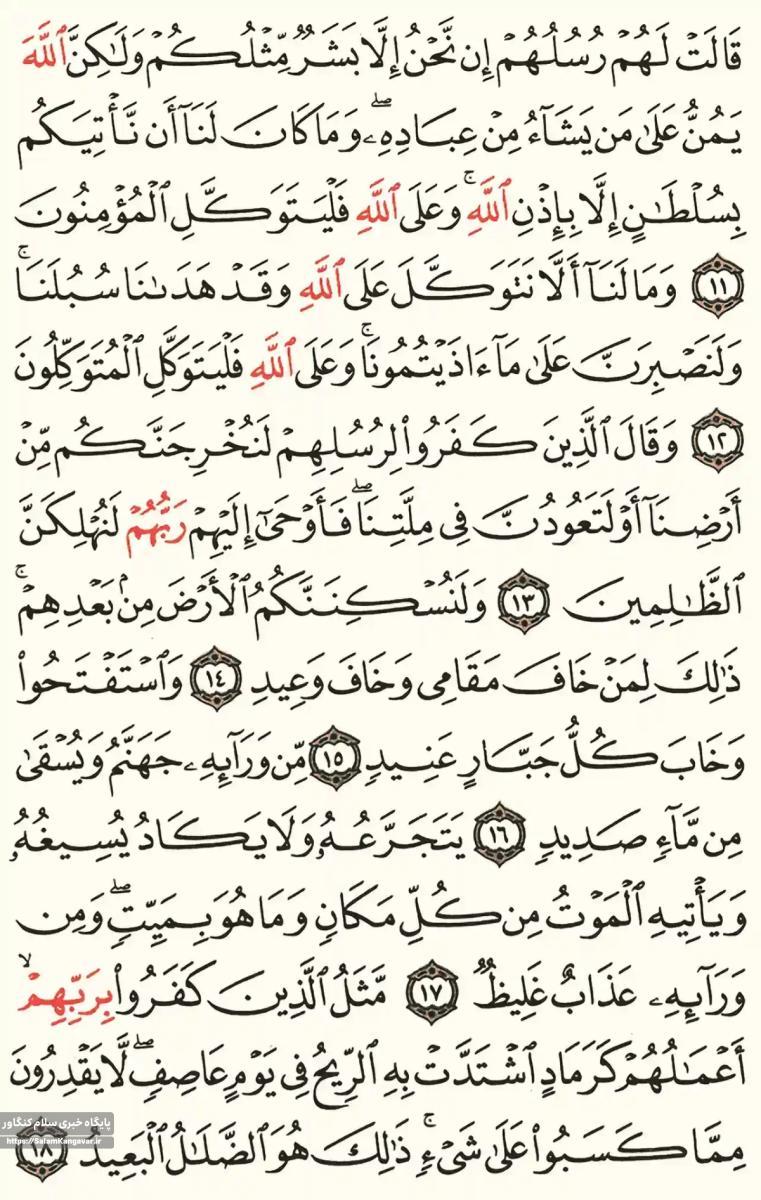 قَالَتْ لَهُمْ رُسُلُهُمْ إِن نَّحْنُ إِلَّا بَشَرٌ مِّثْلُكُمْ وَلَٰكِنَّ ٱللَّهَ
يَمُنُّ عَلَىٰ مَن يَشَآءُ مِنْ عِبَادِهِۦ ۖ وَمَا كَانَ لَنَآ أَن نَّأْتِيَكُم
بِسُلْطَٰنٍ إِلَّا بِإِذْنِ ٱللَّهِ ۚ وَعَلَى ٱللَّهِ فَلْيَتَوَكَّلِ ٱلْمُؤْمِنُونَ
١١ وَمَا لَنَآ أَلَّا نَتَوَكَّلَ عَلَى ٱللَّهِ وَقَدْ هَدَىٰنَا سُبُلَنَا ۚ
وَلَنَصْبِرَنَّ عَلَىٰ مَآ ءَاذَيْتُمُونَا ۚ وَعَلَى ٱللَّهِ فَلْيَتَوَكَّلِ ٱلْمُتَوَكِّلُونَ
١٢ وَقَالَ ٱلَّذِينَ كَفَرُوا۟ لِرُسُلِهِمْ لَنُخْرِجَنَّكُم مِّنْ
أَرْضِنَآ أَوْ لَتَعُودُنَّ فِى مِلَّتِنَا ۖ فَأَوْحَىٰٓ إِلَيْهِمْ رَبُّهُمْ لَنُهْلِكَنَّ
ٱلظَّٰلِمِينَ ١٣ وَلَنُسْكِنَنَّكُمُ ٱلْأَرْضَ مِنۢ بَعْدِهِمْ ۚ
ذَٰلِكَ لِمَنْ خَافَ مَقَامِى وَخَافَ وَعِيدِ ١٤ وَٱسْتَفْتَحُوا۟
وَخَابَ كُلُّ جَبَّارٍ عَنِيدٍ ١٥ مِّن وَرَآئِهِۦ جَهَنَّمُ وَيُسْقَىٰ
مِن مَّآءٍ صَدِيدٍ ١٦ يَتَجَرَّعُهُۥ وَلَا يَكَادُ يُسِيغُهُۥ
وَيَأْتِيهِ ٱلْمَوْتُ مِن كُلِّ مَكَانٍ وَمَا هُوَ بِمَيِّتٍ ۖ وَمِن
وَرَآئِهِۦ عَذَابٌ غَلِيظٌ ١٧ مَّثَلُ ٱلَّذِينَ كَفَرُوا۟ بِرَبِّهِمْ ۙ
أَعْمَٰلُهُمْ كَرَمَادٍ ٱشْتَدَّتْ بِهِ ٱلرِّيحُ فِى يَوْمٍ عَاصِفٍ ۖ لَّا يَقْدِرُونَ
مِمَّا كَسَبُوا۟ عَلَىٰ شَىْءٍ ۚ ذَٰلِكَ هُوَ ٱلضَّلَٰلُ ٱلْبَعِيدُ ١٨
پایگاه خبری سلام کنگاور
https://SalamKangavar.ir